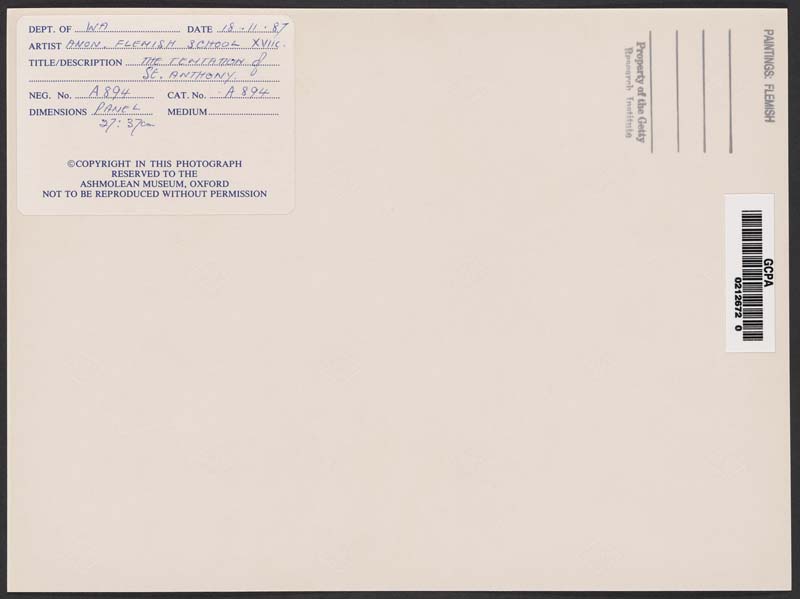 DEPT. OF WA DATE 18.11.87
ARTIST ANON. FLEMISH SCHOOL XVIIC.
TITLE/DESCRIPTION THE TENTATION of
St. ANTHONY.
NEG. No. A894 CAT. No. A894
DIMENSIONS PANEL MEDIUM
27: 37cm
©COPYRIGHT IN THIS PHOTOGRAPH
RESERVED TO THE
ASHMOLEAN MUSEUM, OXFORD
NOT TO BE REPRODUCED WITHOUT PERMISSION
Property of the Getty
Research Institute
PAINTINGS: FLEMISH
GCPA
0212672 0